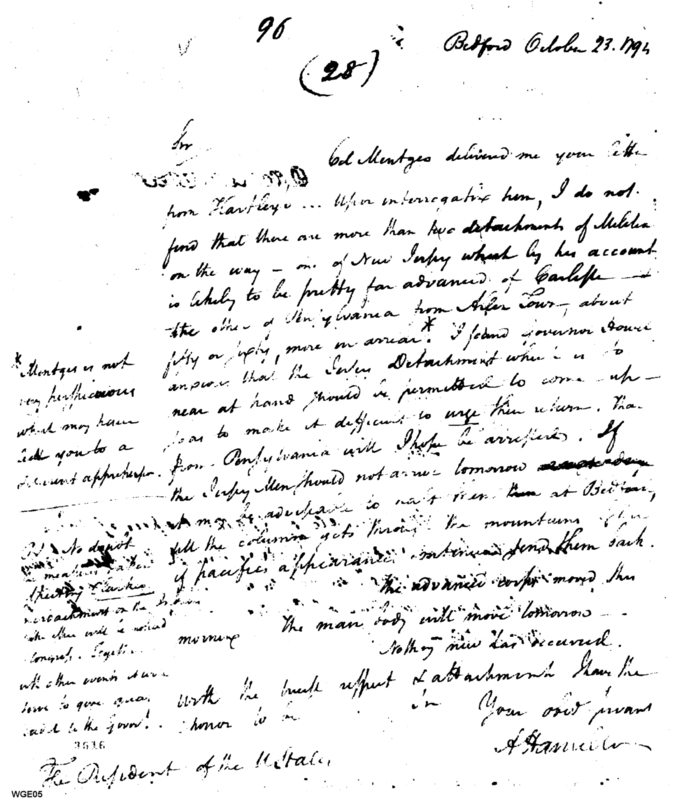 96
(28)
Bedford October 23. 1794
Sir
Col Mentges delivered me your letter
from Hartleys ... Upon interrogating him, I do not
find that there are more than two detachments of Militia
on the way – one of New Jersey which by his account
is likely to be pretty far advanced of Carlisle –
the other of Pensylvania from Town, about
fifty or sixty, more in arrear.* I found governor Howel
anxious that the Jersey Detachment which is so
near at hand should be permitted to come up –
so as to make it difficult to urge their return. That
from Pensylvania will I hope be arrested. If
the Jersey Men should not arrive tomorrow
it may be adviseable to them at Bedford,
till the column gets through the mountains
if pacific appearances continue send them back.
the advanced corps moved this
morning the main body will move tomorrow –
Nothing new has occurred.
With the truest respect & attachment I have the
honor to be Your obed servant
A Hamilton
*Mentges is not
very perspicuous
which may have
led you to a
different apprehension
PS. No doubt
encroachment on the
will be noticed
Congress. Together
with other events
to the Govert.
3616
The President of the U States
WGE05